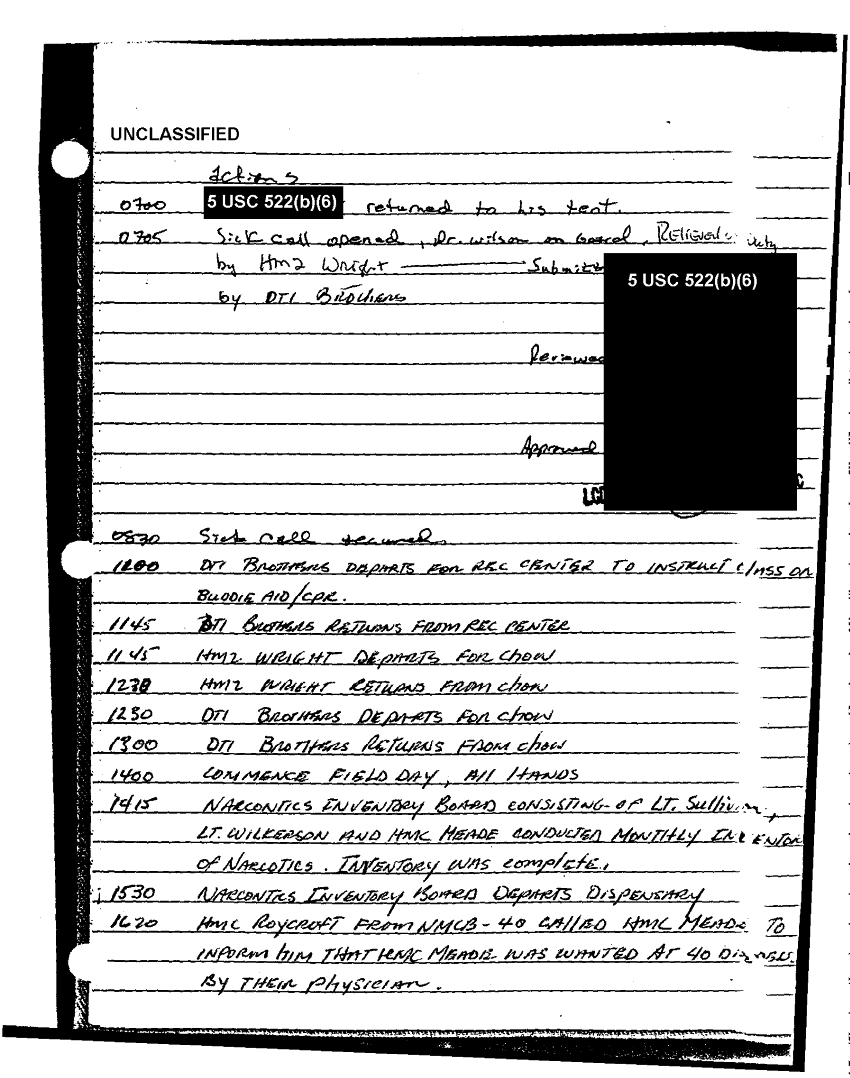 UNCLASSIFIED
Actions
0700 5 USC 522(b)(6) returned to his tent.
0705 Sick call opened, Dr. Wilson on board, RELIEVED duty
by HM2 Wright — Submitt
5 USC 522(b)(6)
by DT1 BROTHERS
Reviewed
Approved
LCD
C
0830 Sick call secured.
DT1 BROTHERS DEPARTS FOR REC CENTER TO INSTRUCT CLASS ON
BUDDIE AID/CPR.
1145 DT1 BROTHERS RETURNS FROM REC CENTER
1145 HM2 WRIGHT DEPARTS FOR CHOW
HM2 WRIGHT RETURNS FROM CHOW
1230 DT1 BROTHERS DEPARTS FOR CHOW
1300 DT1 BROTHERS RETURNS FROM CHOW
1400 COMMENCE FIELD DAY, All HANDS
1415 NARCONTICS INVENTORY BOARD CONSISTING OF LT. Sullivan,
LT. WILKERSON AND HMC MEADE CONDUCTED MONTHLY INVENTOR
OF NARCOTICS. INVENTORY WAS complete.
1530 NARCONTICS INVENTORY BOARD DEPARTS DISPENSARY
1620 HMC ROYCROFT FROM NMCB-40 CALLED HMC MEADE TO
INFORM HIM THAT HMC MEADE WAS WANTED AT 40
BY THEIR PHYSICIAN.